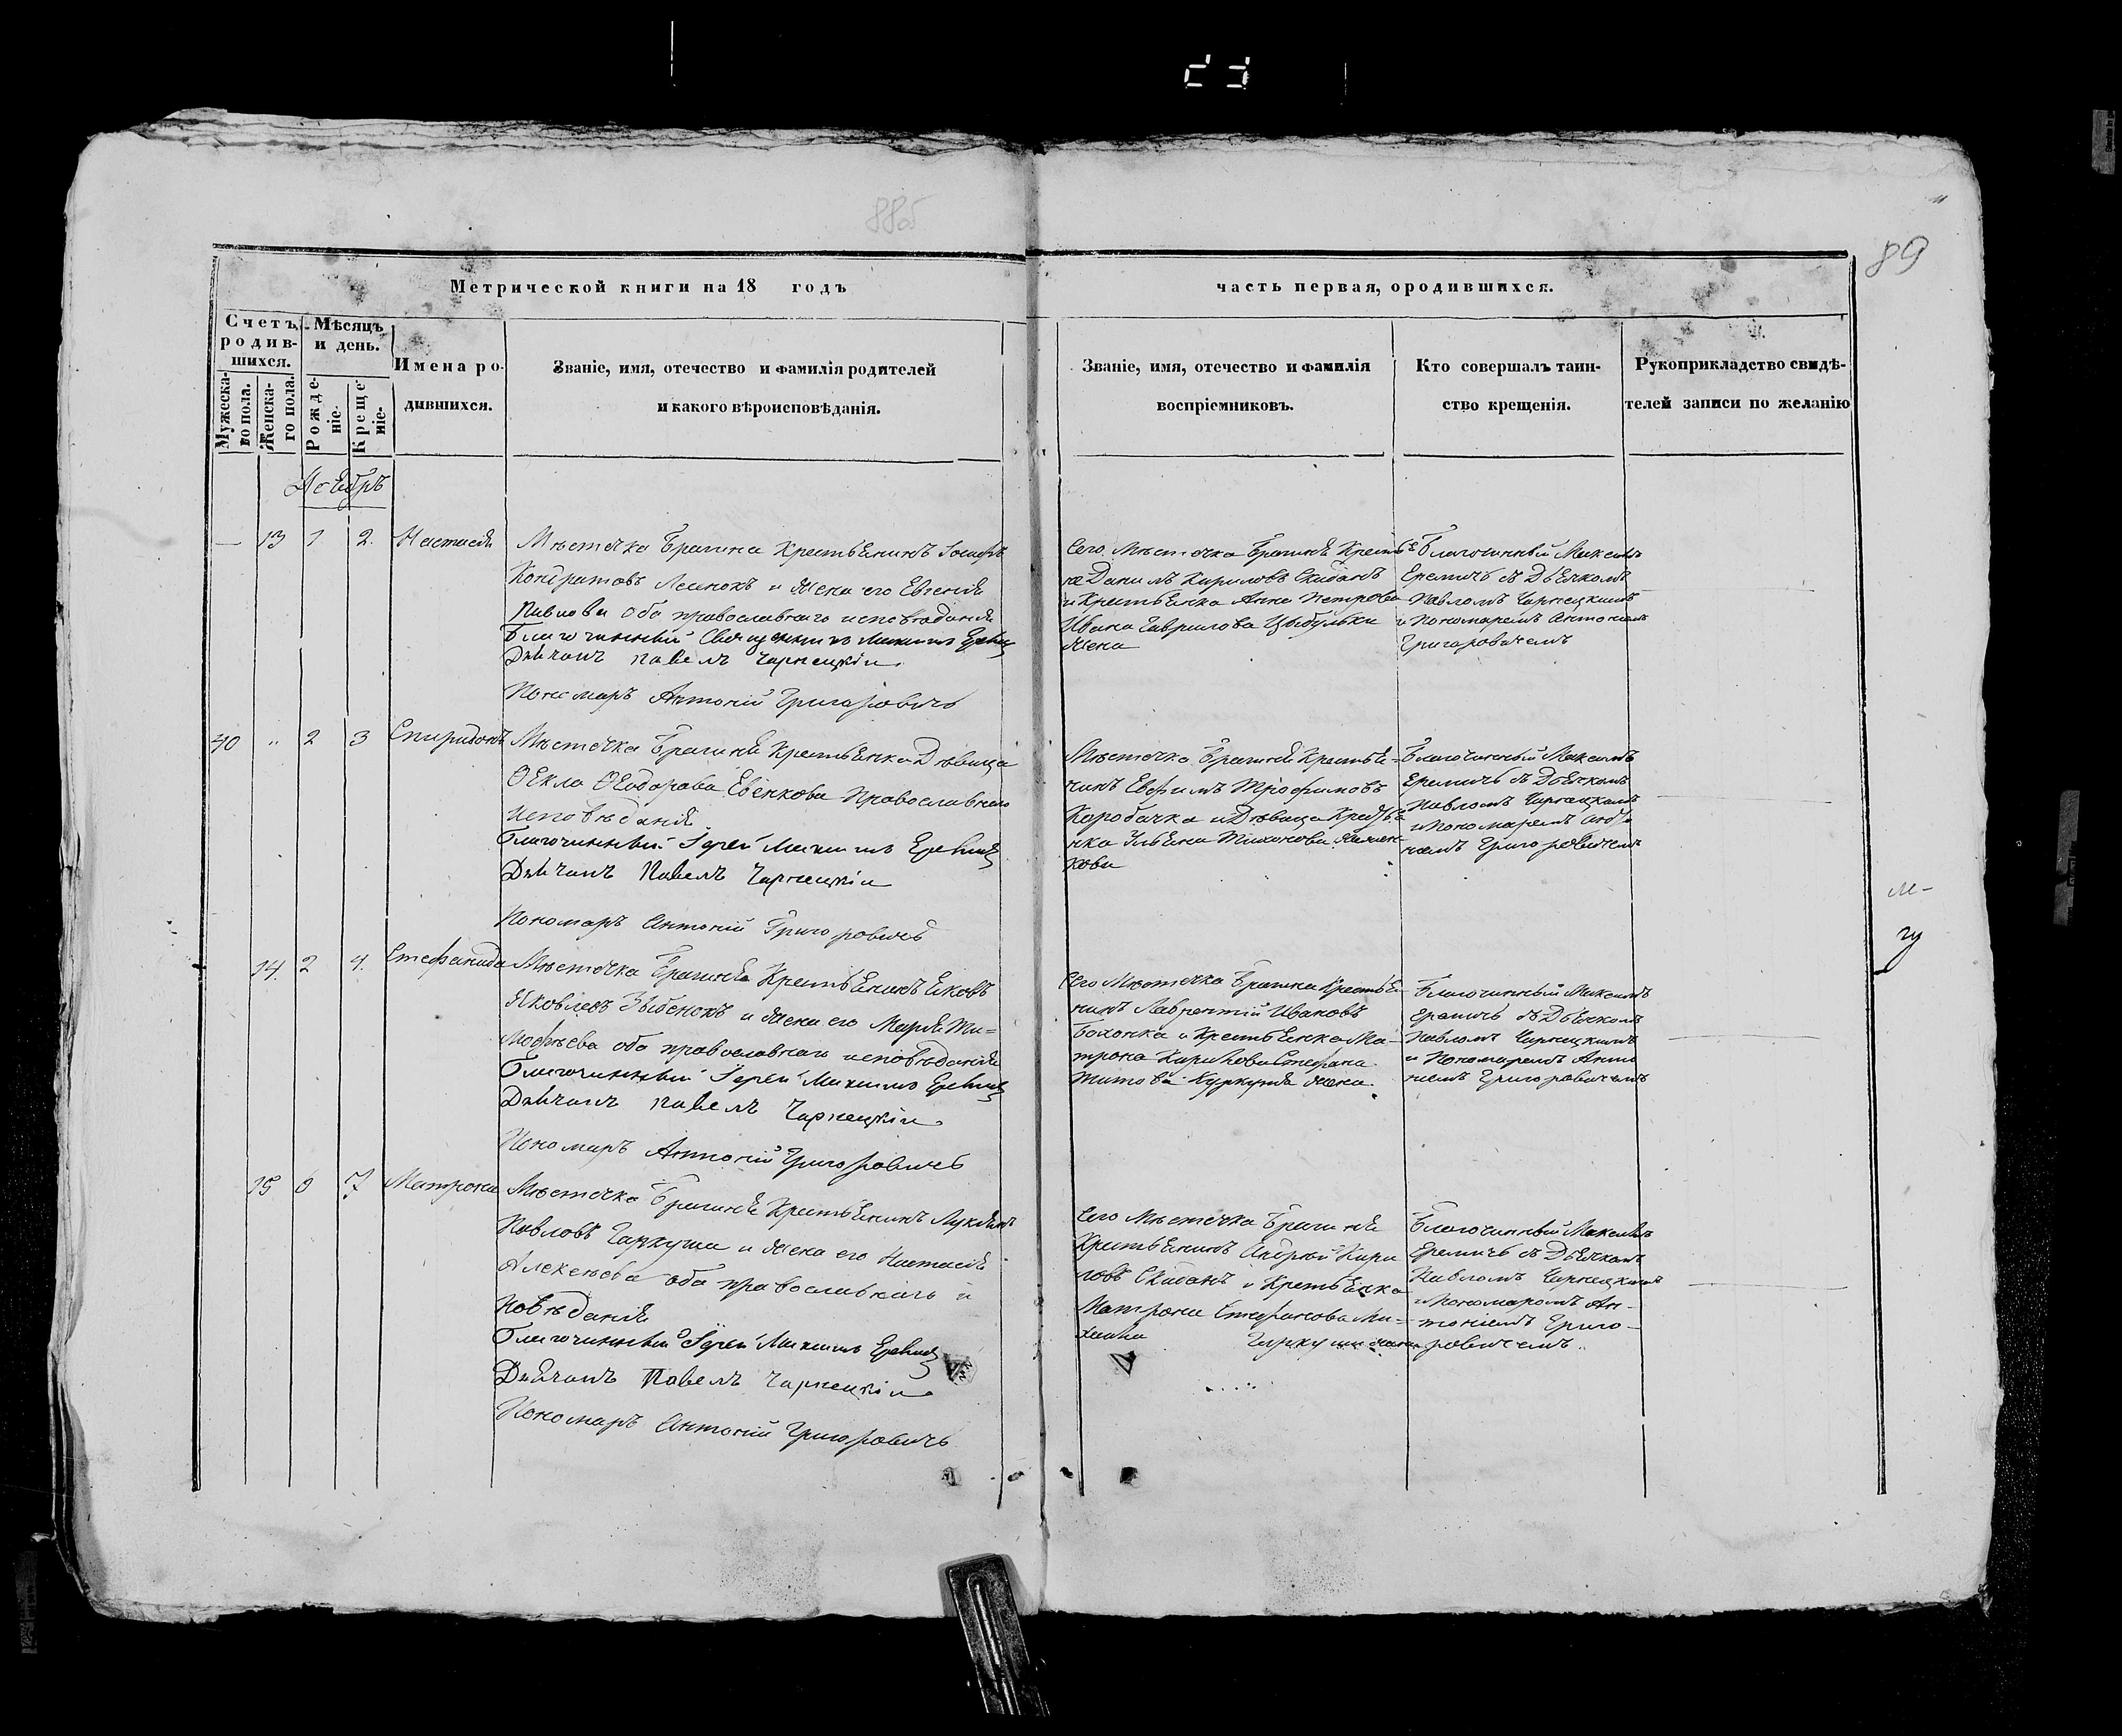 885
89
Метрической книги на 18 годъ
часть первая, ородившихся.
Счетъ родив-шихся.
Мѣсяцъ и день.
Мужеска-го пола.
Женска-го пола.
Рожде-ніе.
Креще-ніе.
Имена ро-
дившихся.
Званіе, имя, отечество и фамилія родителей
и какого вѣроисповѣданія.
Званіе, имя, отечество и фамилія
воспріемниковъ.
Кто совершалъ таин-
ство крещенія.
Рукоприкладство свидѣ-
телей записи по желанію
— 13 1 2. Настасія
Мѣстечка Брагина Крестьянинъ Іосифъ
Кондратовъ Лесиокъ и жена его Евгенія
Павлова оба православнаго исповѣданія
Благочинный Священникъ Максимъ Еремичъ
Дьячокъ Павелъ Чернецкій
Пономаръ Антоній Григоровичъ
Сего Мѣстечка Брагиня Крестья
не Данилъ Кириловъ Скиданъ
и Крестьянка Анна Петрова
Ивана Гаврилова Цыбульки
жена
Благочинный Максимъ
Еремичъ съ Дьячкомъ
Павломъ Чернецкимъ
и Пономаремъ Антоніемъ
Григоровичемъ
40 " 2 3 Спиридонъ
Мѣстечка Брагиня Крестьянка Дѣвица
Ѳекла Ѳеодорова Евенкова Православнаго
исповѣданія
Благочинный Іерей Максимъ Еремичъ
Дьячокъ Павелъ Чернецкій
Пономаръ Антоній Григоровичъ
Мѣстечка Брагиня Крестья-
нинъ Евфимъ Трофимовъ
Коробачка и Дѣвица Крестья
нка Ульяна Тихонова
кова
Благочинный Максимъ
Еремичъ съ Дьячкомъ
Павломъ Чернецкимъ
и Пономаремъ Анто
ніемъ Григоровичемъ
14. 2 4. Стефанида
Мѣстечка Брагиня Крестьянинъ Яковъ
Яковлевъ Зыбенокъ и жена его Марія Ти=
мофѣева оба православнаго исповѣданія
Благочинный Іерей Максимъ Еремичъ
Дьячокъ Павелъ Чернецкій
Пономаръ Антоній Григоровичъ
Сего Мѣстечка Брагина Крестья
нинъ Лаврентій Ивановъ
Бохонка и Крестьянка Ма-
трона Карпова Стефана
Титова жена.
Благочинный Максимъ
Еремичъ съ Дьячкомъ
Павломъ Чернецкимъ
и Пономаремъ Анто
ніемъ Григоровичемъ
15 6 7 Матрона
Мѣстечка Брагиня Крестьянинъ Лукьянъ
Павловъ Гаркуша и жена его Настасія
Алексѣева оба православнаго и
повѣданія
Благочинный Іерей Максимъ Еремичъ
Дьячокъ Павелъ Чернецкій
Пономаръ Антоній Григоровичъ
Сего Мѣстечка Брагиня
Крестьянинъ Андрей Кири
ловъ Скиданъ и Крестьянка
Матрона Стефанова Ми-
хаила Гаркуши жена
Благочинный Максимъ
Еремичъ съ Дьячкомъ
Павломъ Чернецкимъ
и Пономаромъ Ан-
тоніемъ Григо-
ровичемъ.